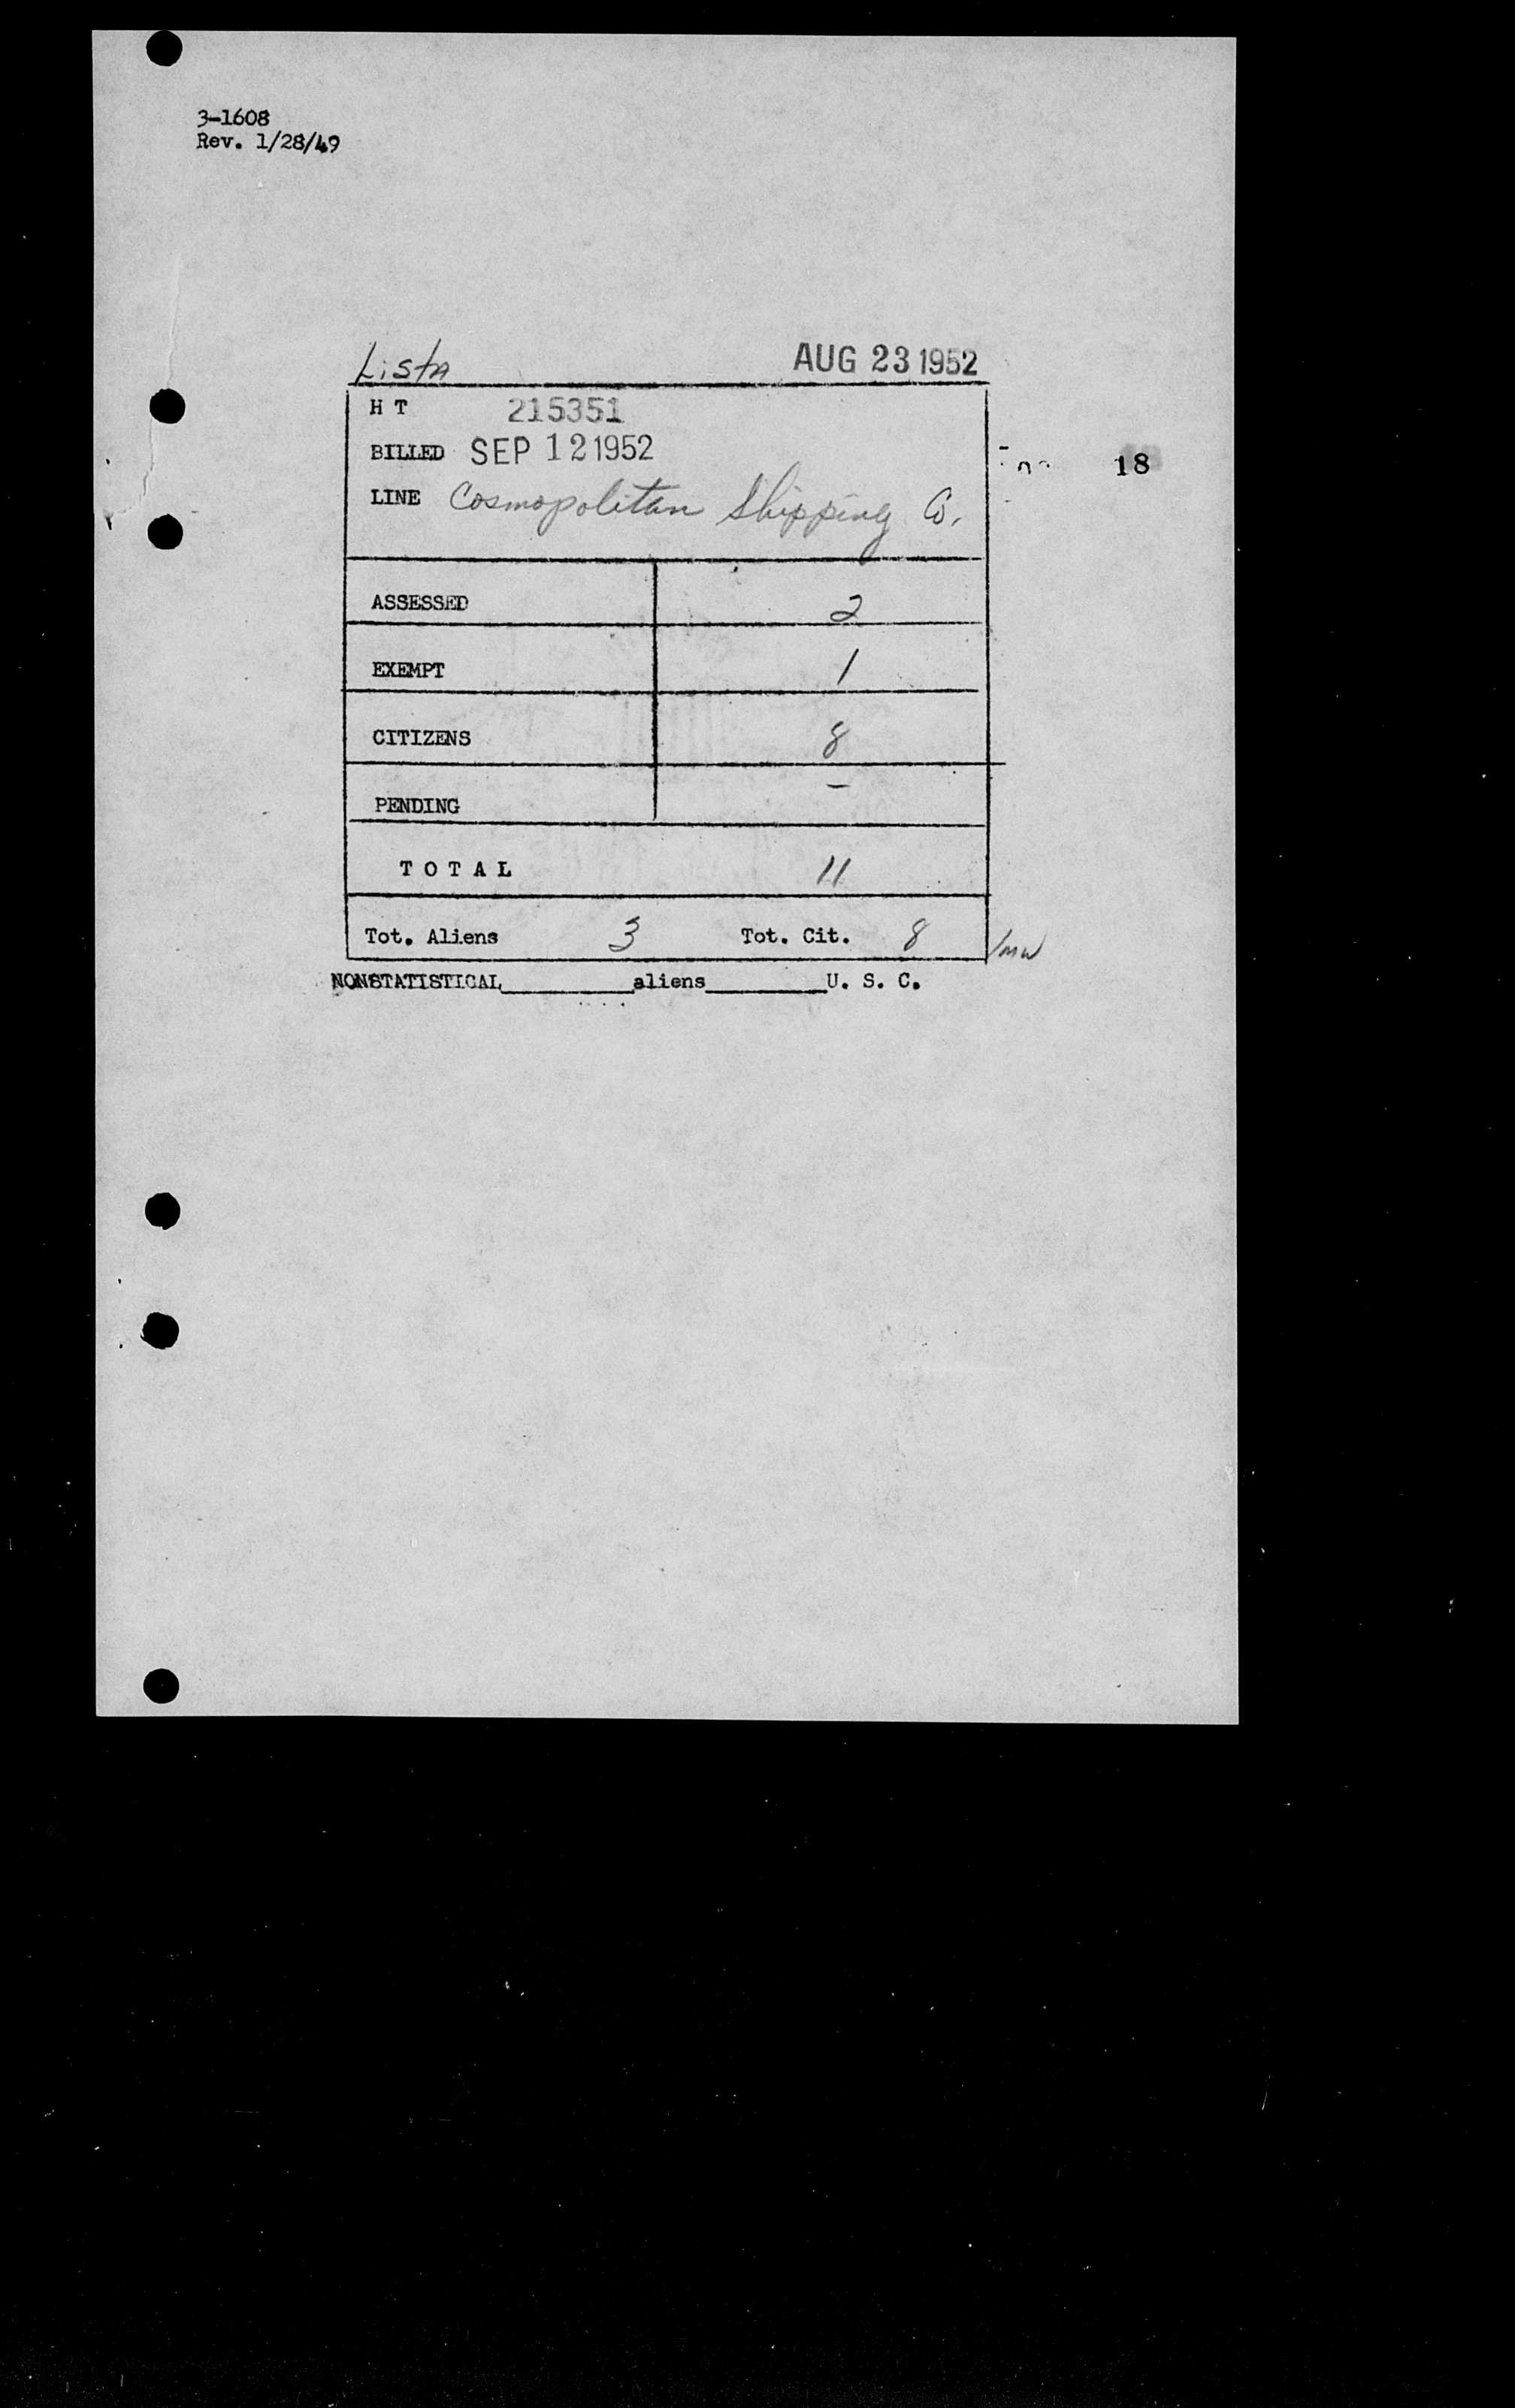 3-1608
Rev. 1/28/49
Lista AUG 23 1952
H T 215351
BILLED SEP 12 1952
18
LINE Cosmopolitan Shipping Co.
ASSESSED 2
EXEMPT 1
CITIZENS 8
PENDING -
T O T A L 11
Tot. Aliens 3 Tot. Cit. 8 /mw
NONSTATISTICAL__________aliens_________U. S. C.